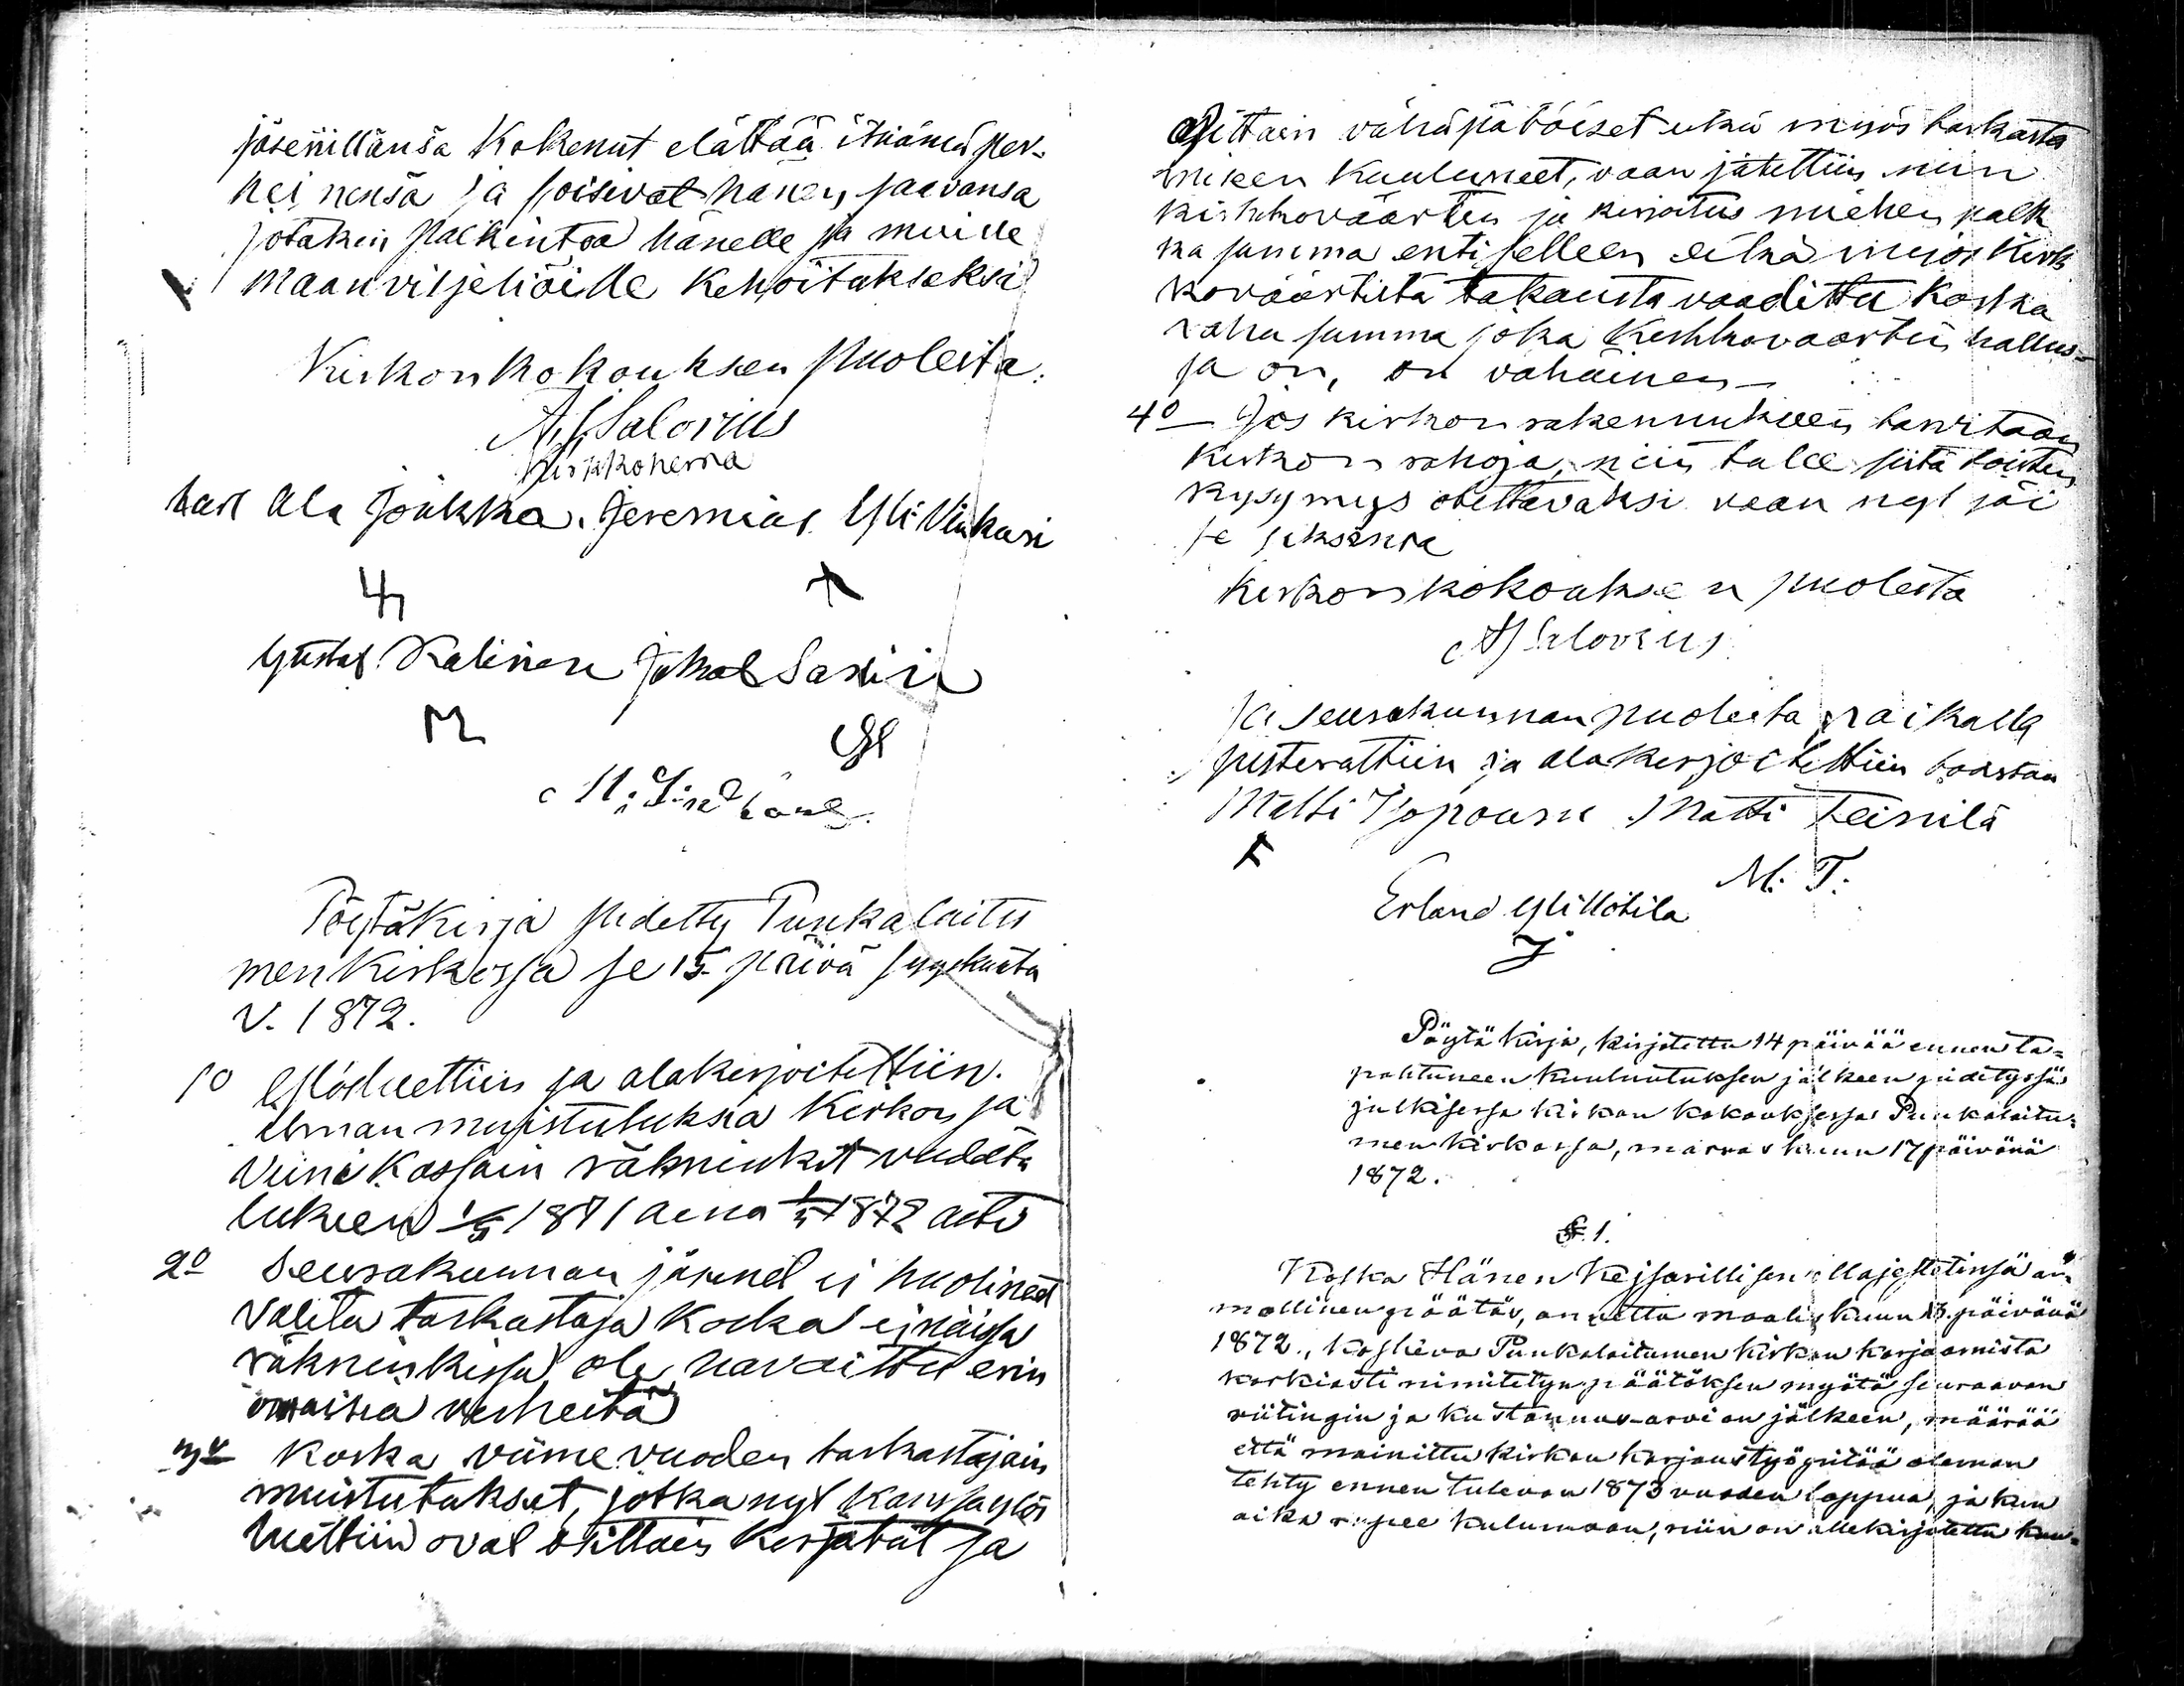 jäsenillänsä kokenut elättää itsiänsä per-
heinensä ja soisivat hänen saavansa
jotakin palkintoa hänelle ja muille
maanviljeliöille kehoitukseksi
Kirkonkokouksen puolesta.
A. J. Salovius
Kirkkoherra
Karl Ala Joukka. Jeremias Yli Vinkari
Gustaf Kalinen Jakob Saxiin
M
M. Lind
Pöytäkirja pidetty Punkalaitu
men Kirkossa se 15. päivä syyskuuta
V. 1872.
1o Ylösluettiin ja alakirjoitettiin
ilman muistutuksia Kirkon ja
Viini Kassain räkninkit vuodesta
lukien 1/5 1871 aina 1/5 1872 asti
2o Seurakunnan jäsenet ei huolineet
valita tarkastaja koska ei näissä
räkninkissä ole havaittu erin
omaisia virheitä
3o Koska viime vuoden tarkastajain
muistutukset, jotka nyt kans ylös
luettiin ovat osittain kirjavat ja
Osittain vähäpätöiset eikä myös tarkasta
miseen kuuluneet, vaan jätettiin niin
kirkkovääртin ja kirjoitus miehen palk
ka summa entiselleen eikä myös Kirk
koväärtistä takausta vaadittu koska
raha summa joka Kirkkovaartin hallus-
sa on, on vähäinen —
4o Jos kirkon rakennukseen tarvitaan
kirkon rahoja, niin tulee siitä toisten
kysymys otettavaksi vaan nyt jäi
se siksensä
Kirkonkokouksen puolesta
A J Salovius
ja seurakunnan puolesta paikalla
pistevattiin ja alakirjoitettiin
Matti Matti Teinilä
M. T.
Erland Yli Uotila
Pöytäkirja, kirjotettu 14 päivää ennen ta=
pahtuneen kuulutuksen jälkeen pidetyssä
julkisessa kirkon kokouksessa Punkalaitu=
men kirkossa, marraskuun 17 päivänä
1872.
§. 1.
Koska Hänen Kejsarillisen Majestetinsä ar=
mollinen päätös, annettu maaliskuun 13. päivänä
1872., koskeva Punkalaitumen kirkon korjaamista
korkiasti nimitetyn päätöksen myötä seuraavan
riitingin ja kustannus-arvion jälkeen, määrää
että mainittu kirkon korjaustyö pitää oleman
tehty ennen tulevan 1873 vuoden loppua, ja kun
aika rupee kulumaan, niin on allekirjotettu kun=